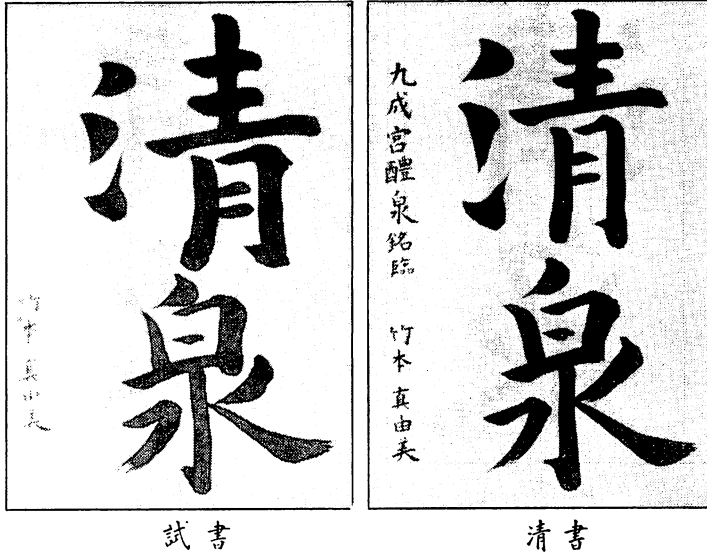 清泉
竹本 真由美
試書
清泉
九成宮醴泉銘臨 竹本 真由美
清書